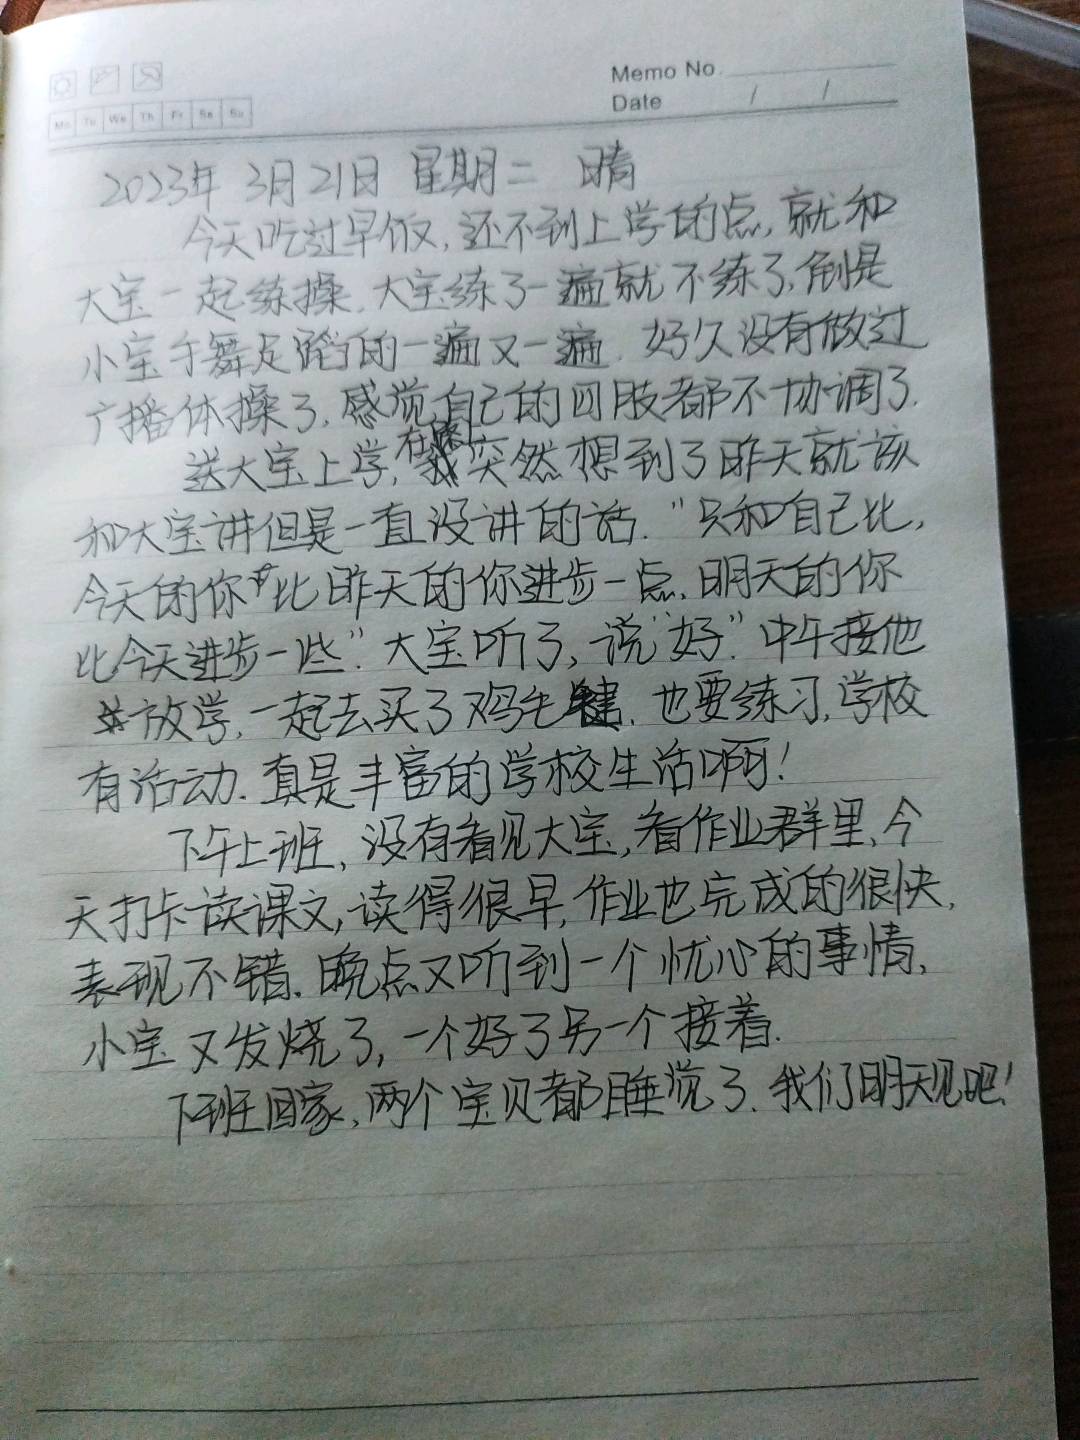 Memo No.
Date / /
Mo Tu We Th Fr Sa Su
2023年 3月21日 星期二 晴
今天吃过早饭,还不到上学的点,就和
大宝一起练操.大宝练了一遍就不练了,倒是
小宝手舞足蹈的一遍又一遍.好久没有做过
广播体操了,感觉自己的四肢都不协调了.
送大宝上学,在路上突然想到了昨天就该
和大宝讲但是一直没讲的话."只和自己比,
今天的你比昨天的你进步一点,明天的你
比今天进步一些".大宝听了,说"好".中午接他
放学,一起去买了鸡毛毽.也要练习,学校
有活动.真是丰富的学校生活啊!
下午上班,没有看见大宝,看作业群里,今
天打卡读课文,读得很早,作业也完成的很快,
表现不错.晚点又听到一个忧心的事情,
小宝又发烧了,一个好了另一个接着.
下班回家,两个宝贝都睡觉了.我们明天见吧!